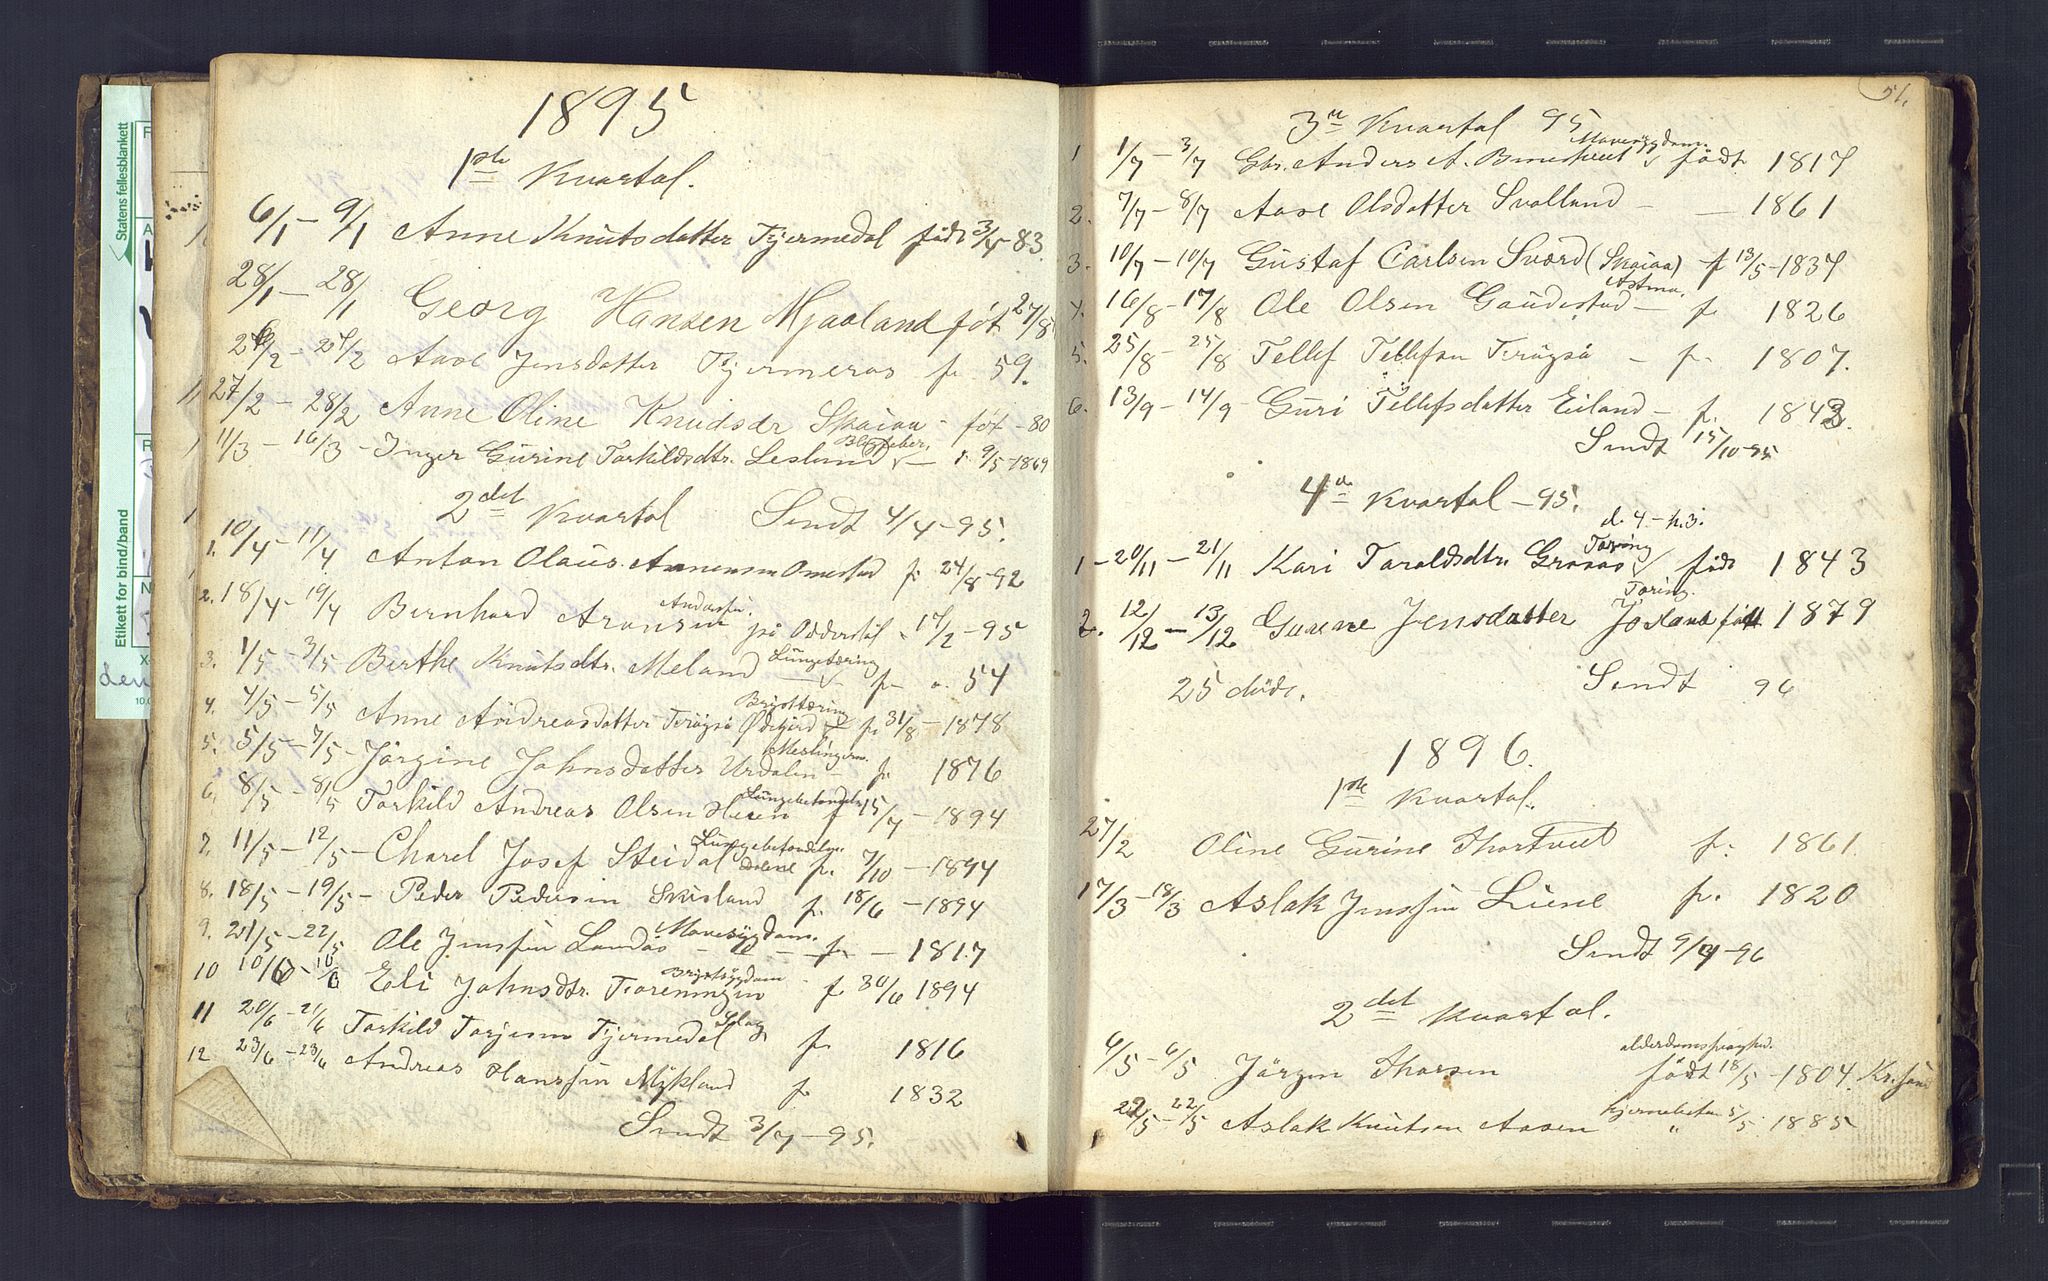 1895
1ste Kvartal.
6/1 – 9/1 Anne Knutsdatter Tjermedal född 3/4-83.
28/1 – 28/1 Georg Hansen Mjaaland föt 27/8
2/2 – 24/2 Aase Jensdatter Tjermeros f. 59.
27/2 – 28/2 Anne Oline Knudsdr Skaiaa – föt -80
11/3 – 16/3 – Inger Gurine Torkildsdtr. Leslund – f. 9/5-1869
2det Kvartal Sendt 4/4-95.
1. 10/4 – 11/4 Anton Olaus Omestad f. 24/8-92
Andersen
2. 18/4 – 19/4 Bernhard Aronsen på Odderstöl 17/2-95
Lungetæring
3. 1/5 – 3/5 Berthe Knutsdtr. Meland – f. 54
Brysttæring
4. 4/5 – 5/5 Anne Andreasdatter Ödegård f. 31/8-1878
Meslingerne
5. 5/5 – 7/5 – Jörgine Johnsdatter Urdalen – f. 1876
Lungebetændelse
6. 8/5 – 8/5 Torkild Andreas Olsen f 15/7 – 1894
Lungebetændelse
7. 11/5 – 12/5 – Charel Josef Steidal f. 7/10 – 1894
8. 18/5 – 19/5 – Peder Pedersen Skisland f. 18/6 – 1894
Mavesygdom.
9. 21/5 – 22/5 Ole Jenssen Landås – f. – 1817
Brystsygdom
10 10/6 – 10/6 Eli Johnsdtr. Foreningen f 30/6 1894
Slag
11 20/6 – 21/6 Torkild Torjesen Tjermedal f. 1816
12 23/6 – 23/6 Andreas Hanssen Mykland f. 1832
Sendt 3/7 – 95.
51.
3die Kvartal 95
Mavesygdom.
1 1/7 – 3/7 Gbr. Anders A. född 1817
2. 7/7 – 8/7 Aase Olsdatter Svalland – – 1861
3. 10/7 – 10/7 Gustaf Carlsen Sværd (Skaiaa) – f 13/5-1837
Astma.
4. 16/8 – 17/8 Ole Olsen Gaudestad – f. 1826
5. 25/8 – 25/8 Tellef Tellefsen – f. 1807.
6. 13/9 – 14/9 – Guri Tellefsdatter Eiland – f. 1843.
Sendt 15/10-95
4de Kvartal – 95.
d. 4. – h. 3.
Tæring
1 – 20/11 – 21/11 Kari Taraldsdtr. Grosås född 1843
Tæring.
2. 12/12 – 13/12 Gurine Jensdatter född 1879
25 döde. Sendt 96
1896.
1ste Kvartal.
27/2 Oline Gurine Thortveit f. 1861.
17/3 – 18/3 Aslak Jenssen Liene f. 1820
Sendt 9/4-96
2det Kvartal.
alderdomssvaghed.
6/5 – 6/5 Jörgen Thorsen född 18/5-1804. Kr.sand
22/5 – 22/5 Aslak Knutsen Aasen " 5/5 1885